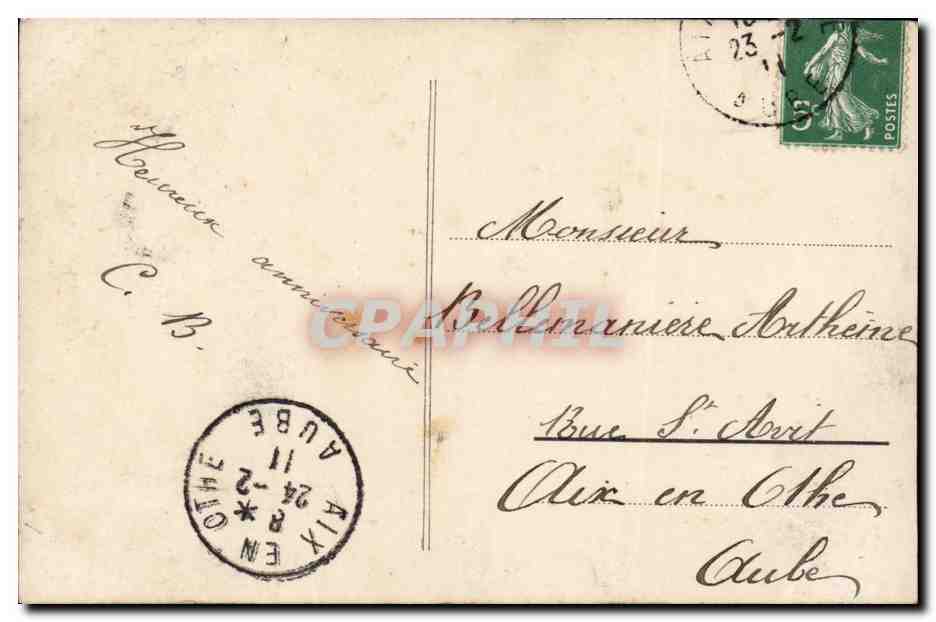 Heureux anniversaire
C. B.
23 -2
11
AUBE
POSTES
Monsieur
Bellemanière Artheine
Rue St Avit
Aix en Othe
Aube
CPAPHIL
AIX EN OTHE
AUBE
8 *
24 -2
11